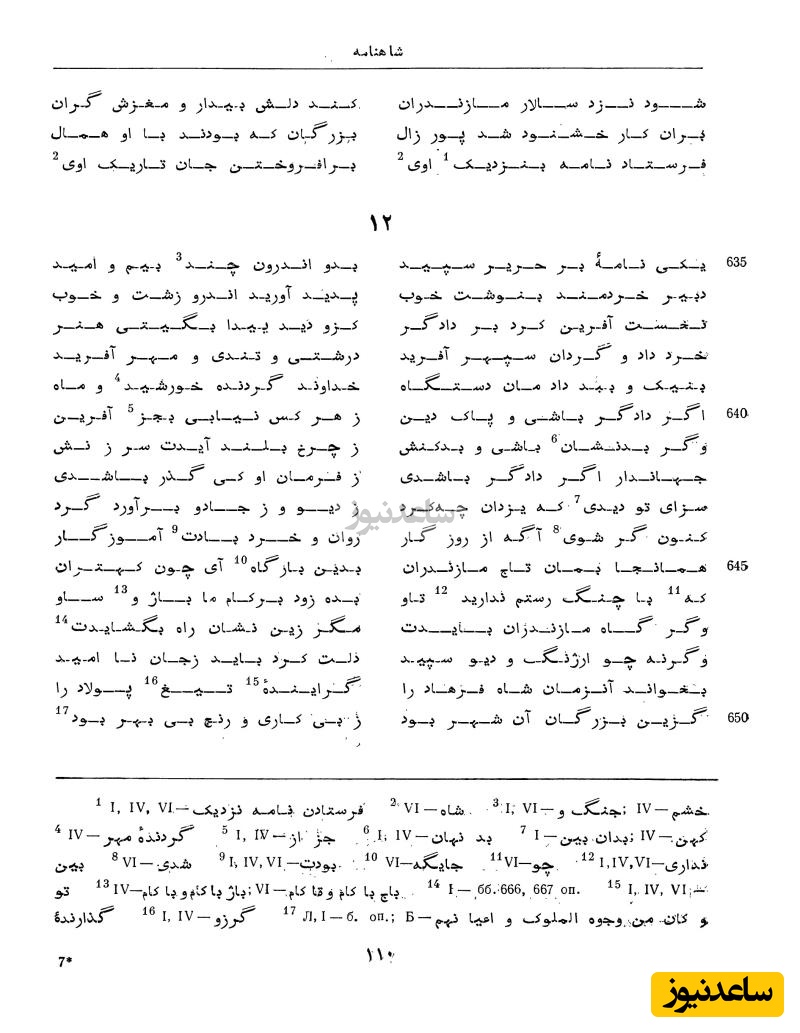 شاهنامه
شود نزد سالار مازندران کند دلش بیدار و مغزش گران
بران کار خشنود شد پور زال بزرگان که بودند با او همال
فرستاد نامه بنزدیک¹ اوی² برافروختن جان تاریک اوی²
۱۲
635 یکی نامهٔ بر حریر سپید بدو اندرون چند³ بیم و امید
دبیر خردمند بنوشت خوب پدید آورید اندرو زشت و خوب
نخست آفرین کرد بر دادگر کزو دید پیدا بگیتی هنر
خرد داد و گردان سپهر آفرید درشتی و تندی و مهر آفرید
بنیک و ببد داد مان دستگاه خداوند گردنده خورشید⁴ و ماه
640 اگر دادگر باشی و پاک دین ز هر کس نیابی بجز⁵ آفرین
وگر بدنشان⁶ باشی و بدکنش ز چرخ بلند آیدت سر ز نش
جهاندار اگر دادگر باشدی ز فرمان او کی گذر باشدی
سزای تو دیدی⁷ که یزدان چه کرد ز دیو و ز جادو برآورد گرد
کنون گر شوی⁸ آگه از روز گار روان و خرد بادت⁹ آموزگار
645 همانجا بمان تاج مازندران بدین بارگاه¹⁰ آی چون کهتران
که¹¹ با چنگ رستم ندارید¹² تاو بده زود برکام ما باژ و¹³ ساو
وگر گاه مازندران بایدت مگر زین نشان راه بگشایدت¹⁴
وگرنه چو ارژنگ و دیو سپید دلت کرد باید زجان نا امید
بخواند آنزمان شاه فرهاد را گرایندهٔ¹⁵ تیغ¹⁶ پولاد را
650 گزین بزرگان آن شهر بود ز بی کاری و رنج بی بهر بود¹⁷
¹ I, IV, VI— فرستادن نامه نزدیک ² VI— شاه ³ I, VI— جنگ و; IV— خشم
⁴ IV— گردندهٔ مهر ⁵ I, IV— جز از ⁶ I, IV— بد نهان ⁷ I— بدان بین; IV— کهن
بین ⁸ VI— شدی ⁹ I, IV, VI— بودت ¹⁰ VI— جایگه ¹¹ VI— چو ¹² I, IV, VI— نداری
تو ¹³ IV— باژ با کام و با کام; VI— باج با کام و قا کام ¹⁴ I— бб. 666, 667 оп. ¹⁵ I, IV, VI—
گذارندهٔ ¹⁶ I, IV— گرزو ¹⁷ Л, I— б. оп.; Б— و کان من وجوه الملوک و اعیا نهم
7*
۱۱۰
ساعدنیوز
ساعدنیوز